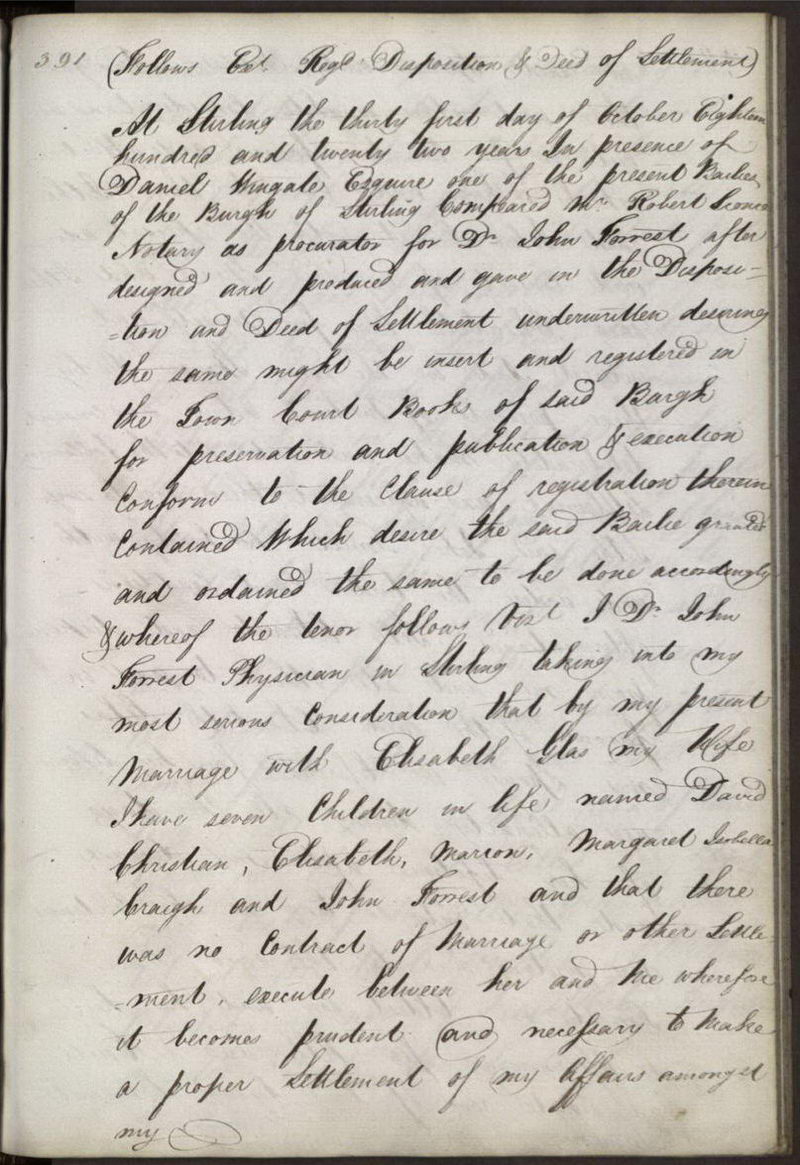 391 (Follows Ext. Regd. Disposition & Deed of Settlement)
At Stirling the thirty first day of October Eighteen
hundred and twenty two years In presence of
Daniel Wingate Esquire one of the present Bailies
of the Burgh of Stirling Compeared Mr. Robert
Notary as procurator for Dr. John Forrest after
designed and produced and gave in the Disposi=
=tion and Deed of Settlement underwritten desiring
the same might be insert and registered in
the Town Court Books of said Burgh
for preservation and publication & execution
Conform to the Clause of registration therein
Contained Which desire the said Bailie granted
and ordained the same to be done accordingly
& whereof the tenor follows Vizt I Dr. John
Forrest Physician in Stirling taking into my
most serious Consideration that by my present
Marriage with Elisabeth Glas my Wife
I have seven Children in life named David
Christian, Elisabeth, Marion, Margaret Isobella
Craigh and John Forrest and that there
was no Contract of Marriage or other Settle
=ment, execute between her and Me wherefore
it becomes prudent and necessary to Make
a proper Settlement of my Affairs amongst
my